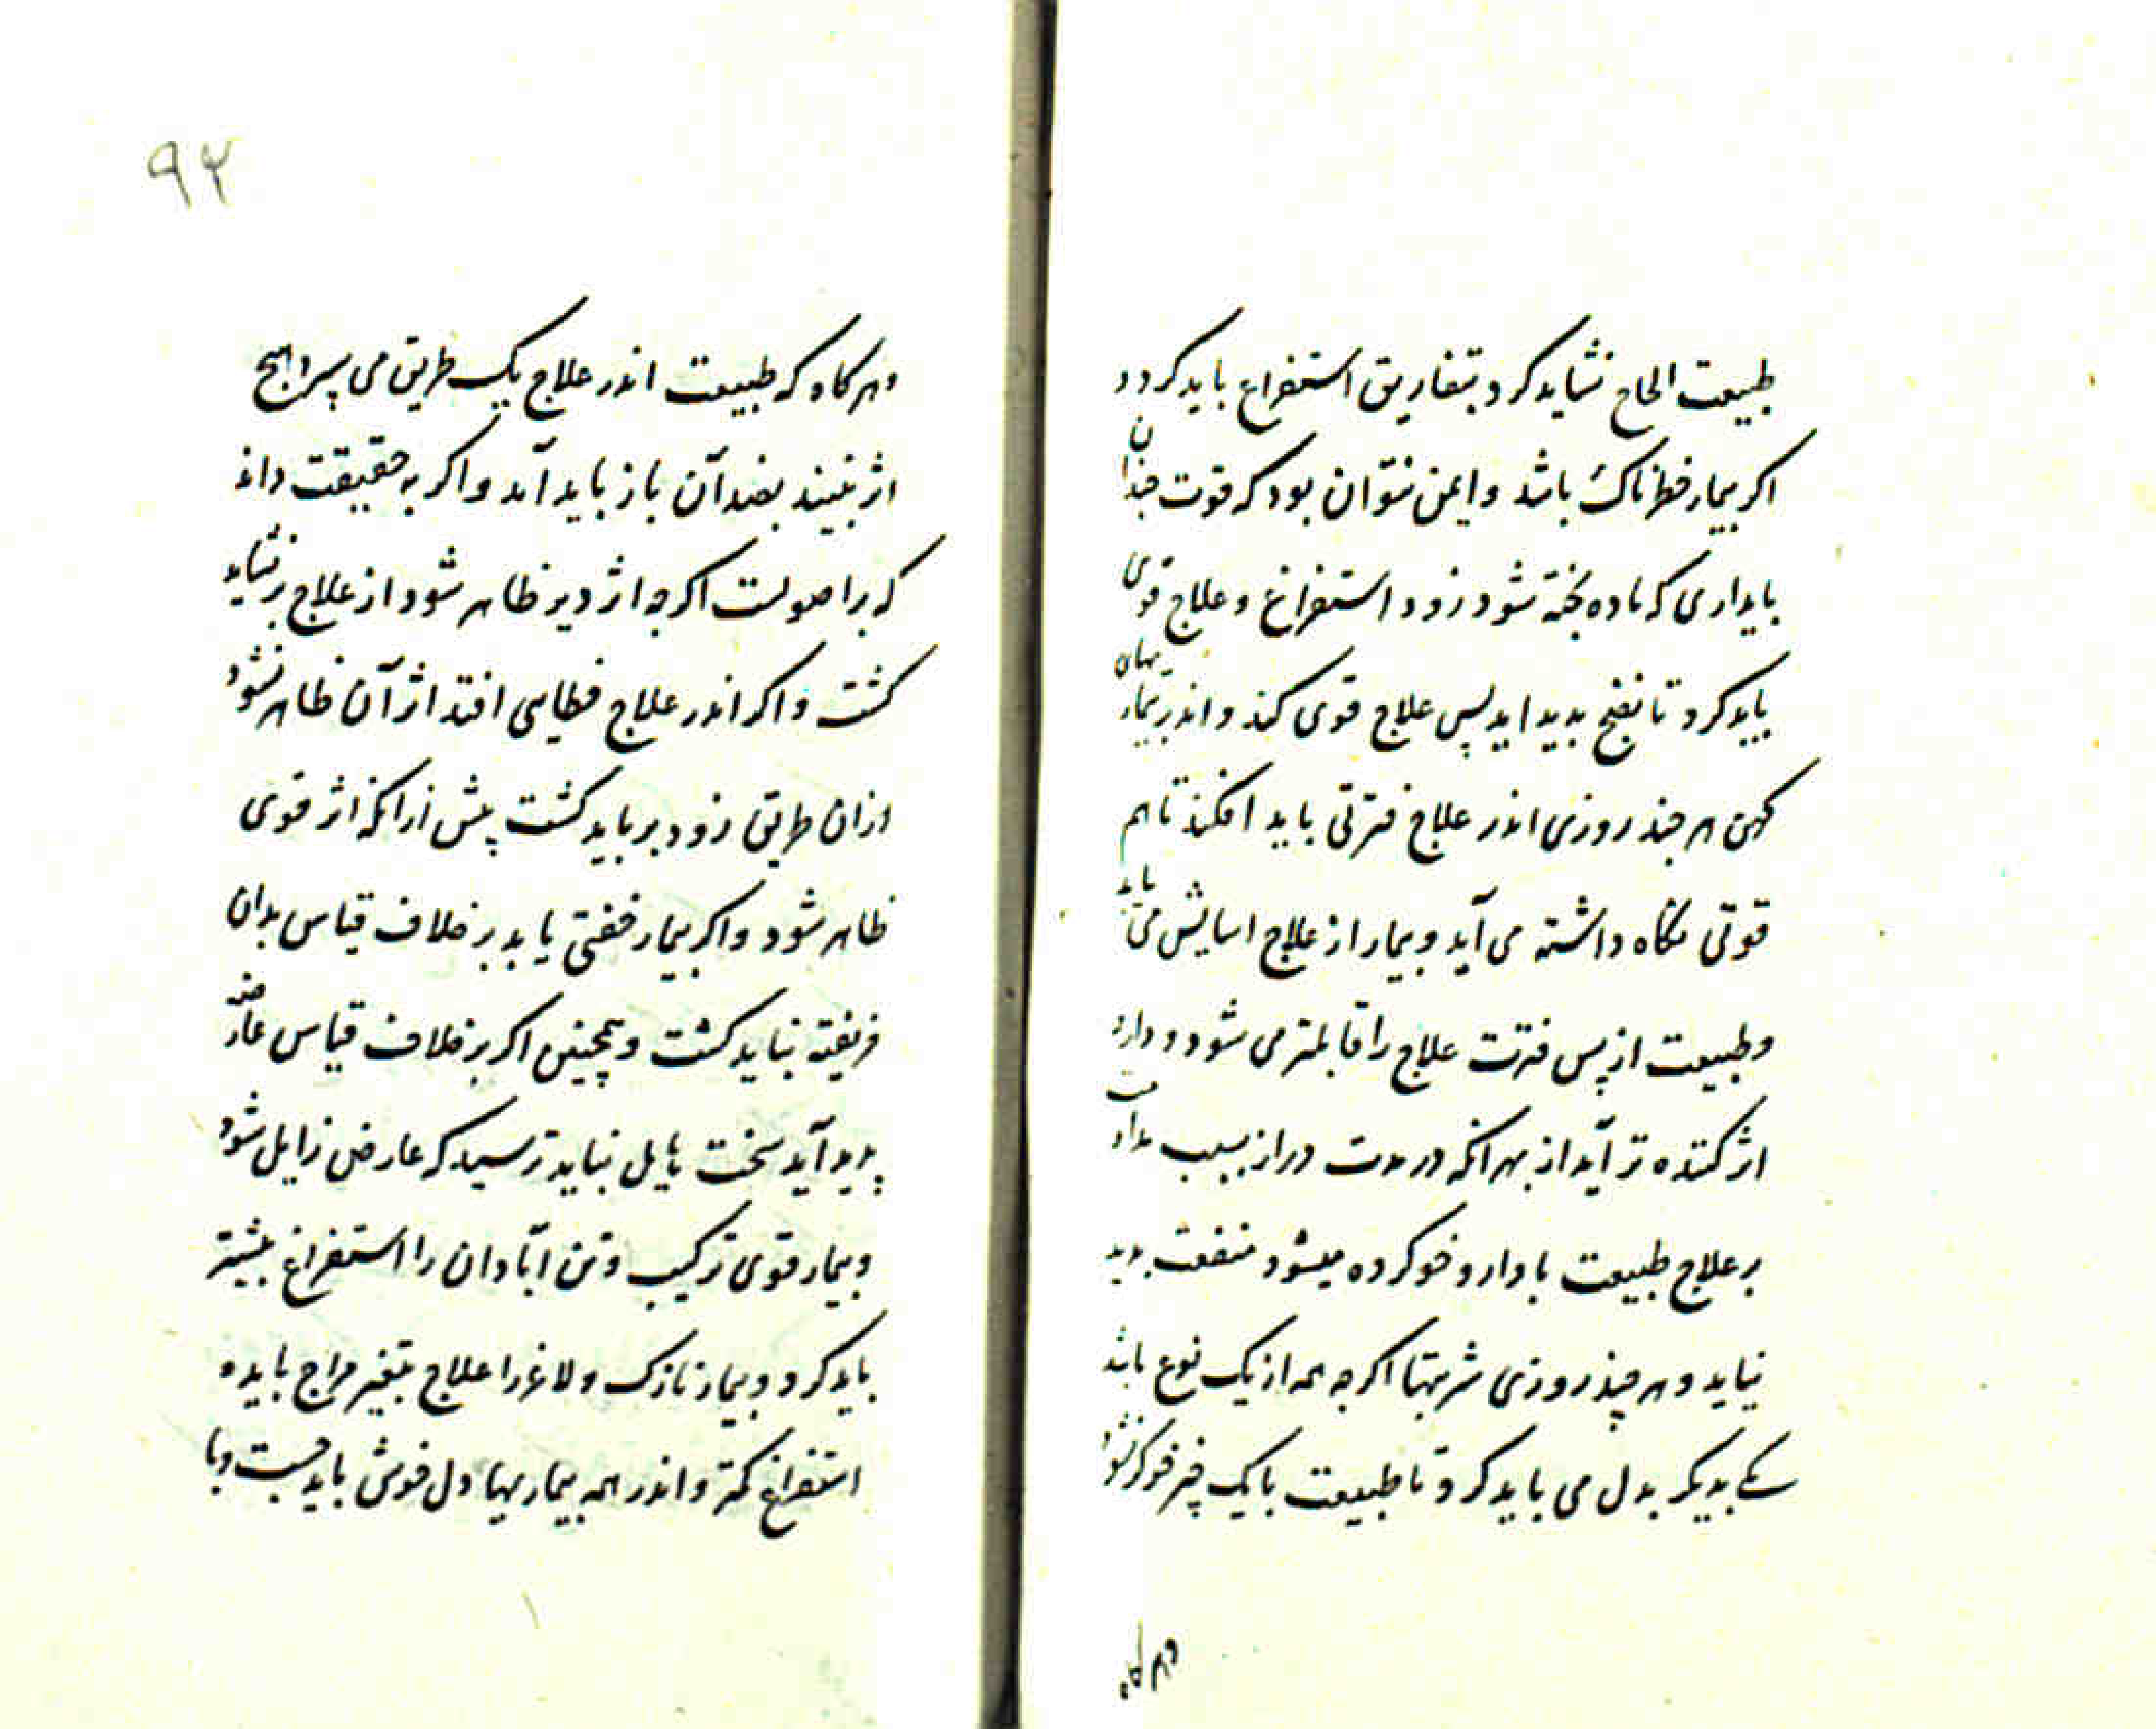 طبیعت الحاح نشاید کرد و بتفاریق استفراغ باید کرد و
اکر بیمار خطرناک باشد و ایمن نتوان بود که قوت چندان
بایداری که ماده بخته شود زود استفراغ و علاج قوی
باید کرد تا نضج بدید اید پس علاج قوی کند و اندر بیماریهای
کهن هر جند روزی اندر علاج فترتی باید افکند تا هم
قوتی نکاه داشته می آید و بیمار از علاج اسایش می یابد
و طبیعت از پس فترت علاج را قابلتر می شود و دارو
اثر کننده تر آید از بهر انکه در مدت دراز بسبب مداومت
بر علاج طبیعت با دارو خو کرده میشود منفعت بدید
نیاید و هر چند روزی شربتها اکر جه همه از یک نوع باشد
یکی بدیکر بدل می باید کرد تا طبیعت با یک چیز خو کر نشود
و هرکاه
۹۲
و هرکاه که طبیعت اندر علاج یک طریق می سپرد و هیچ
اثر نبیند بضد آن باز باید آمد و اکر به حقیقت داند
که بر اصولست اکرجه اثر دیر ظاهر شود از علاج بر نشاید
کشت و اکر اندر علاج خطایی افتد اثر آن ظاهر نشود
ازان طریق زود بر باید کشت پیش از انکه اثر قوی
ظاهر شود و اکر بیمار خفتی یابد بر خلاف قیاس بدان
فریفته نباید کشت و همچنین اکر بر خلاف قیاس عارضه
پدید آید سخت هایل نباید ترسید که عارض زایل شود
و بیمار قوی ترکیب و تن آبادان را استفراغ بیشتر
باید کرد و بیمار نازک و لاغر را علاج بتغیر مزاج باید و
استفراغ کمتر و اندر همه بیماریها دل خوش باید جست و با